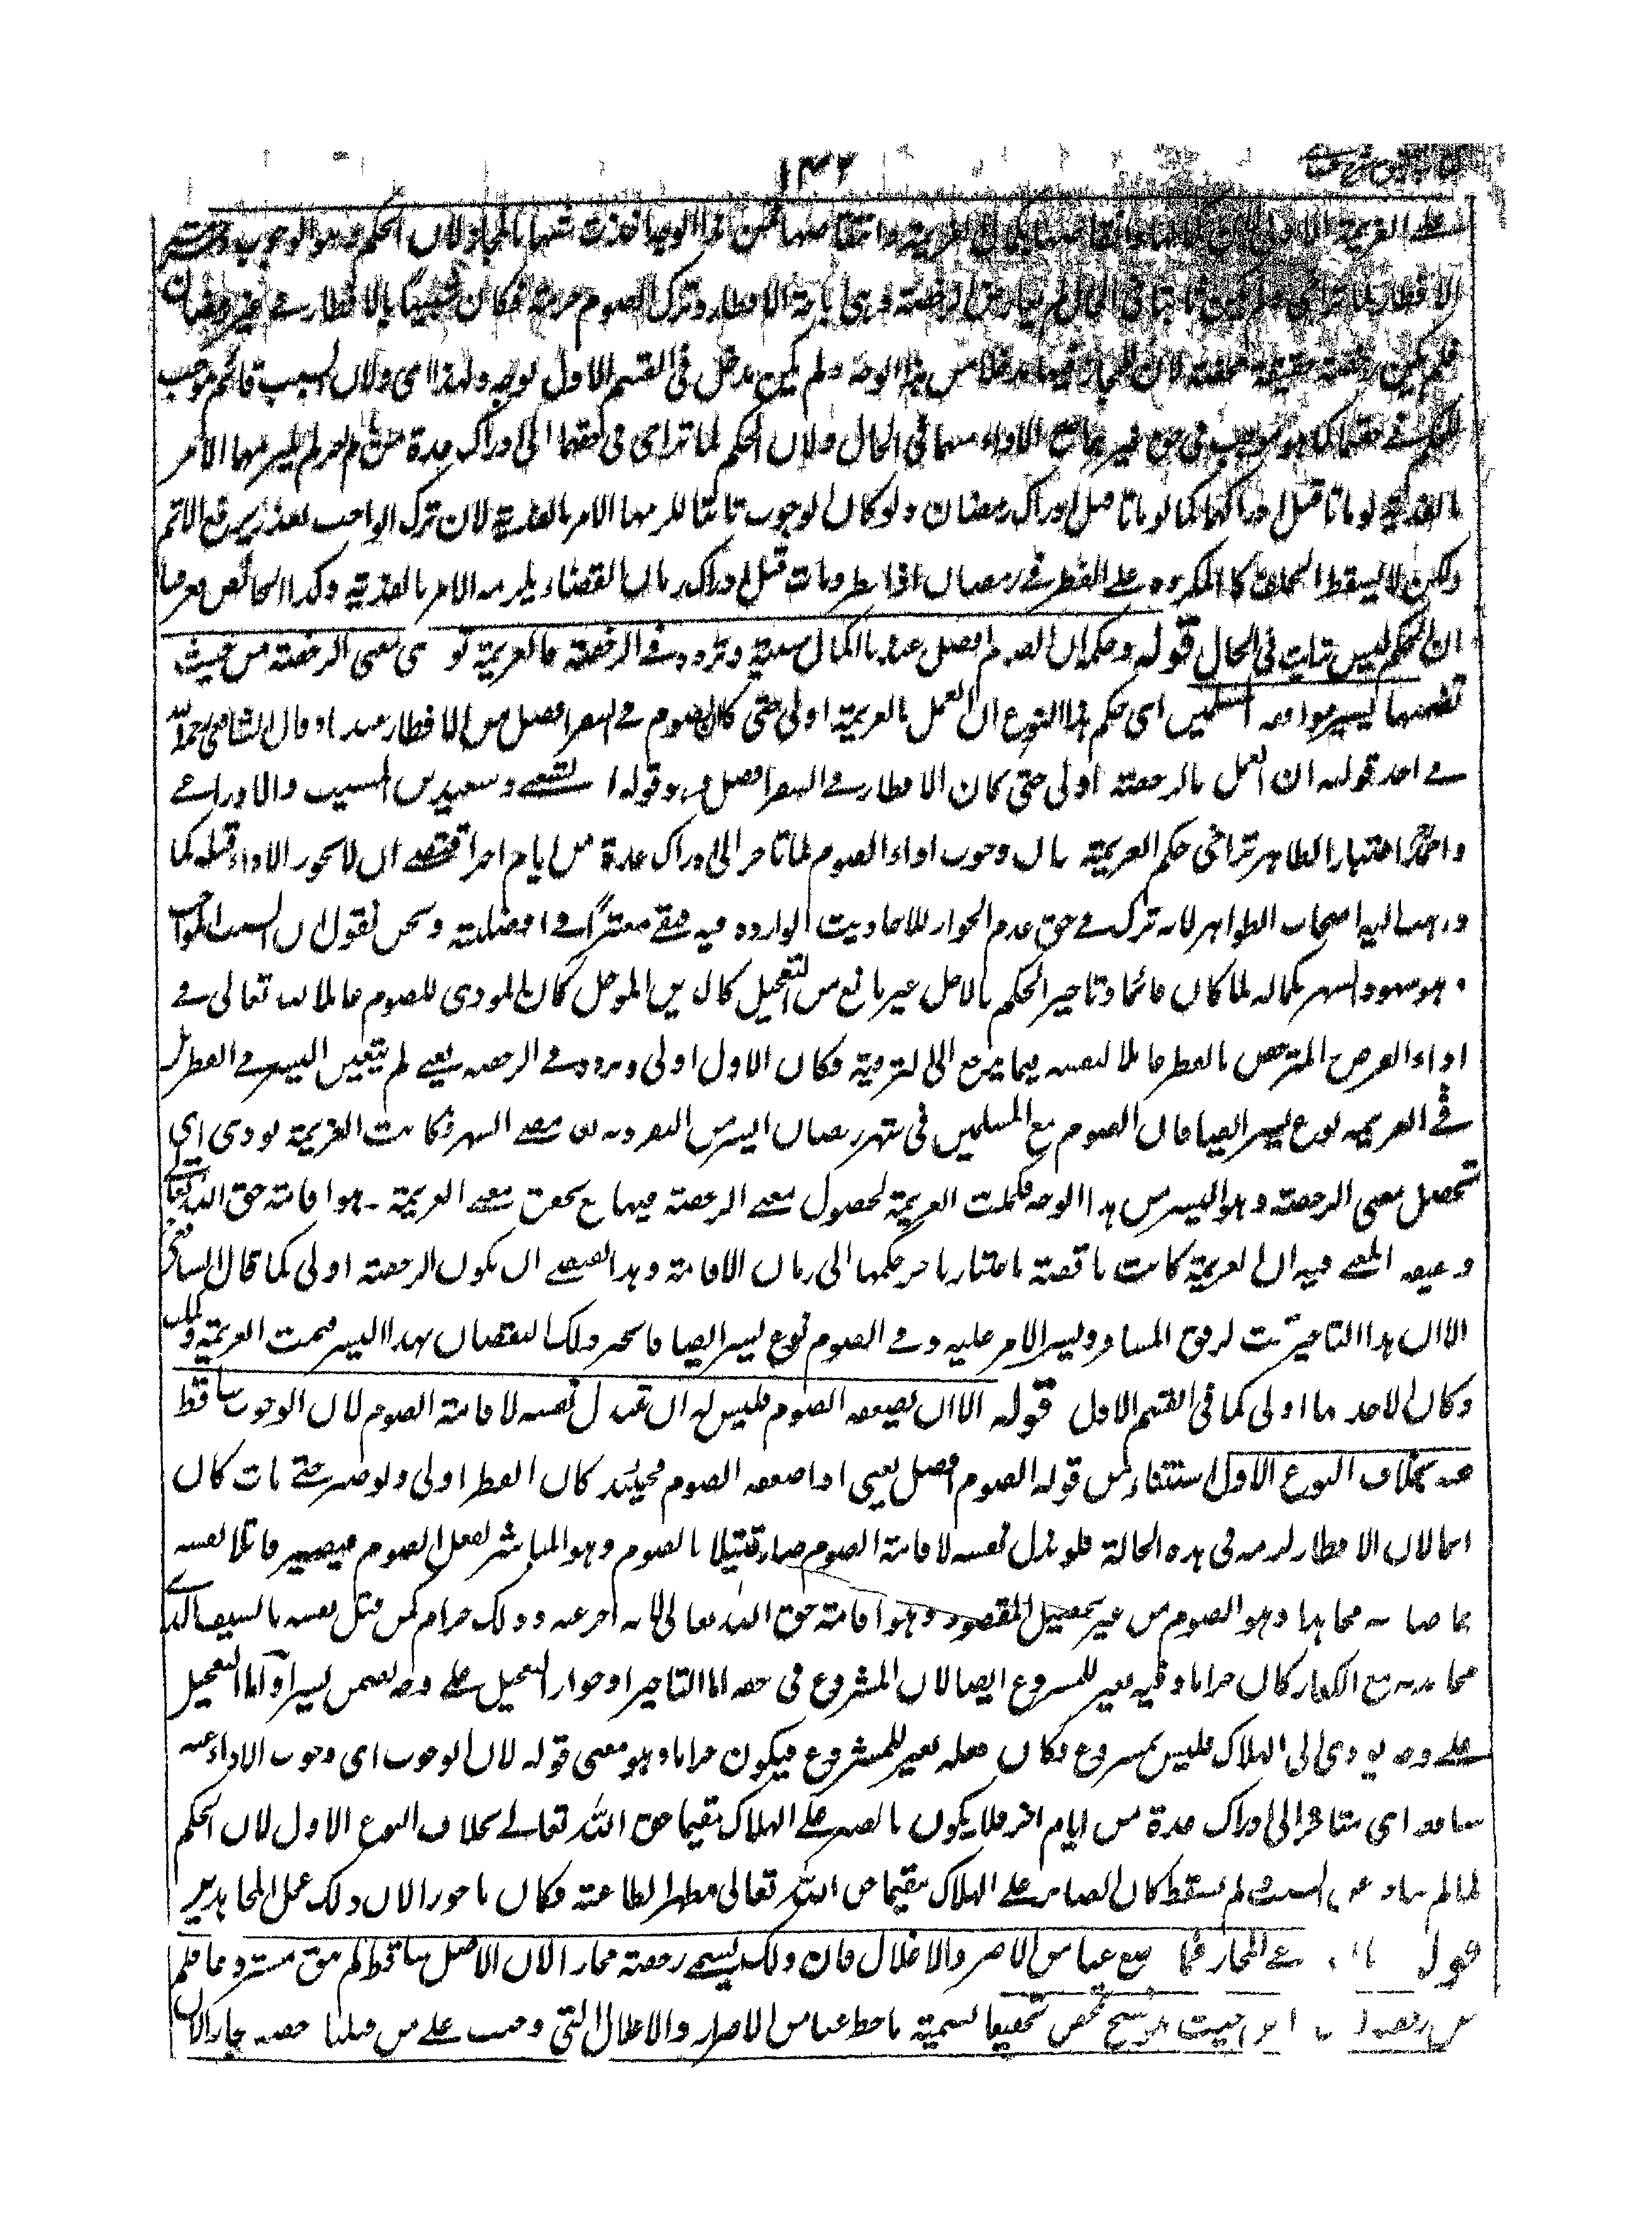 ١٣٢
على العزيمة الا ان كمالها وانتقاصها بكمال العزيمة وانتقاصها فمن هذا الوجه اخذت شبها بالمجاز ولان الحكم وهو الوجوب وحرمة
الافطار لما تراخى ولم يكن ثابتا فى الحال لم يعارض الرخصة وهى اباحة الافطار وترك الصوم حرمة فكان شبيها بالافطار فے غير رمضان
فلم يكن رخصة حقيقة لان المجاز من هذا الوجه ولم يكن يدخل فى القسم الاول بوجه ولهذا اى ولان السبب قائم موجب
للحكم فے حقهما صح الاداء منهما فى الحال ولان الحكم لما تراخى فى حقهما الى ادراك عدة من ايام اخر لم يلزمهما الامر
بالفدية لو ماتا قبل ادراكها كما لو ماتا قبل ادراك رمضان ولو كان الوجوب ثابتا للزمهما الامر بالفدية لان ترك الواجب بعذر يرفع الاثم
ولكن لا يسقط الخلف كالمكره علے الفطر فے رمضان اذا افطر ومات قبل ادراك زمان القضاء يلزمه الامر بالفدية وكذا الحائض فعرفنا
ان الحكم ليس بثابت فى الحال قوله وحكمه ان الصوم افضل عندنا لكمال سببه وتردد فے الرخصة فالعزيمة تودى معنى الرخصة من حيث
تضمنها ليسر موافقة المسلمين اى حكم هذا النوع ان العمل بالعزيمة اولى حتى كان الصوم فے السفر افضل من الافطار عندنا وقال الشافعى رحمه الله
فے احد قوليه ان العمل بالرخصة اولى حتى كان الافطار فے السفر افضل وهو قول الشعبے وسعيد بن المسيب والاوزاعے
واحمد اعتبارا لظاهر تراخى حكم العزيمة فان وجوب اداء الصوم لما تاخر الى ادراك عدة من ايام اخر اقتضے ان لا يجوز الاداء قبله كما
ذهب اليه اصحاب الظواهر الا انه ترك فے حق عدم الجواز للاحاديث الواردة فيه فبقے معتبرا فے افضليته ونحن نقول ان السبب الموجب
وهو شهود الشهر بكماله لما كان قائما وتاخير الحكم بالاجل غير مانع من التعجيل كالدين المؤجل كان المودى للصوم عاملا لله تعالى فے
اداء الفرض والمترخص بالفطر عاملا لنفسه فيما يرجع الى الترفيه فكان الاول اولى وتردد فے الرخصة يعنے لم يتعين اليسر فے الفطر بل
فے العزيمة نوع يسر ايضا فان الصوم مع المسلمين فى شهر رمضان ايسر من التفرد به بعد مضے الشهر فكانت العزيمة تودى اى
تحصل معنى الرخصة وهو اليسر من هذا الوجه فكملت العزيمة لحصول معنے الرخصة فيها مع تحقق معنے العزيمة وهو اقامة حق الله تعالے
وحقيقة المعنے فيه ان العزيمة كانت ناقصة باعتبار تاخر حكمها الى زمان الاقامة وهذا يقتضے ان يكون الرخصة اولى كما قال الشافعى
الا ان هذا التاخير ثبت لرفق المسافر وتيسير الامر عليه وفے الصوم نوع يسر ايضا فانجبر ذلك النقصان بهذا اليسر فتمت العزيمة وكملت
وكان الاخذ بها اولى كما فى القسم الاول قوله الا ان يضعفه الصوم فليس له ان يبذل نفسه لاقامة الصوم لان الوجوب ساقط
عنه بخلاف النوع الاول استثناء من قوله الصوم افضل يعنى اذا اضعفه الصوم فحينئذ كان الفطر اولى ولو صبر حتے مات كان
اثما لان الافطار لزمه فى هذه الحالة فلو بذل نفسه لاقامة الصوم صار قتيلا بالصوم وهو المباشر لفعل الصوم فيصير قاتلا نفسه
بما صار به مجاهدا وهو الصوم من غير تحصيل المقصود وهو اقامة حق الله تعالى لانه اخر عنه وذلك حرام كمن قتل نفسه بالسيف الذى
يجاهد به مع الكفار كان حراما وفيه تغيير للمشروع ايضا لان المشروع فى حقه اما التاخير او جواز التعجيل علے وجه يتضمن يسرا فاما التعجيل
علے وجه يودى الى الهلاك فليس بمشروع فكان فعله تغييرا للمشروع فيكون حراما وهو معنى قوله لان الوجوب اى وجوب الاداء عنه
ساقط اى متاخر الى ادراك عدة من ايام اخر فلا يكون بالصبر علے الهلاك مقيما حق الله تعالے بخلاف النوع الاول لان الحكم
لما لم يسقط كان الصابر علے الهلاك مقيما حق الله تعالى مظهرا لطاعته فكان ماجورا لان ذلك عمل المجاهدين
قوله المجاز فما وضع عنا من الاصر والاغلال فان ذلك يسمے رخصة مجازا لان الاصل ساقط لم يبق مشروعا فلم
يكن رخصة الا من حيث هو نسخ تمحض تخفيفا لتسمية ما حط عنا من الاصار والاغلال التى وجبت علے من قبلنا رخصة مجازا لان